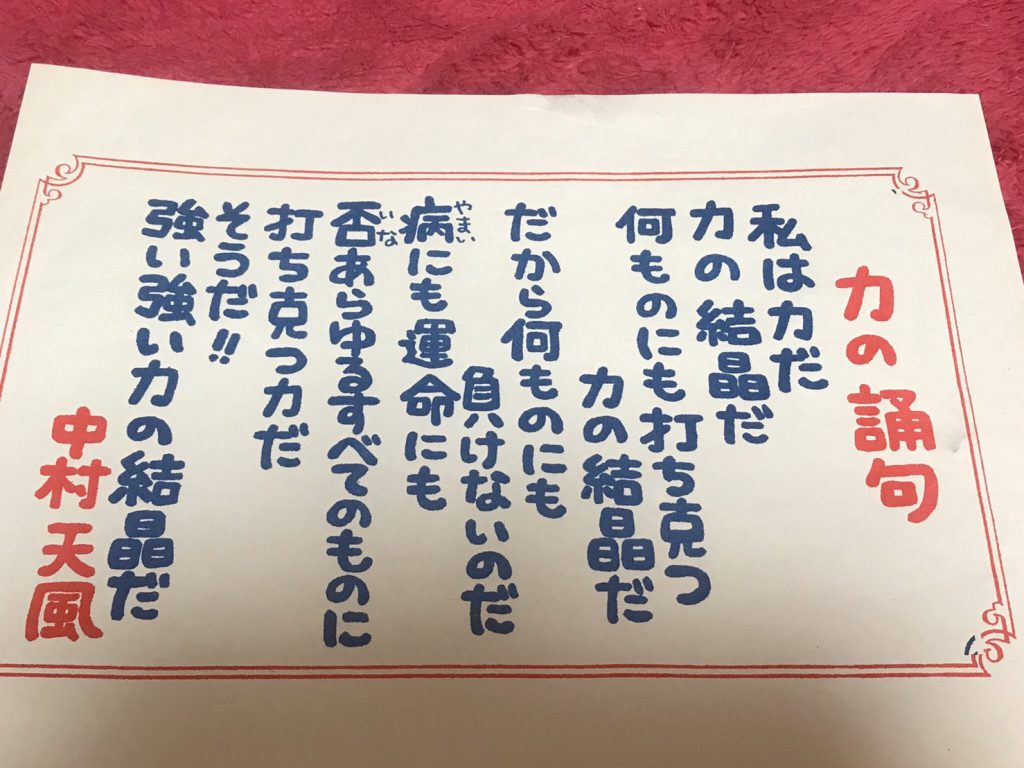 力の誦句
私は力だ
力の結晶だ
何ものにも打ち克つ
力の結晶だ
だから何ものにも
負けないのだ
病にも運命にも
やまい
否あらゆるすべてのものに
いな
打ち克つ力だ
そうだ!!
強い強い力の結晶だ
中村天風